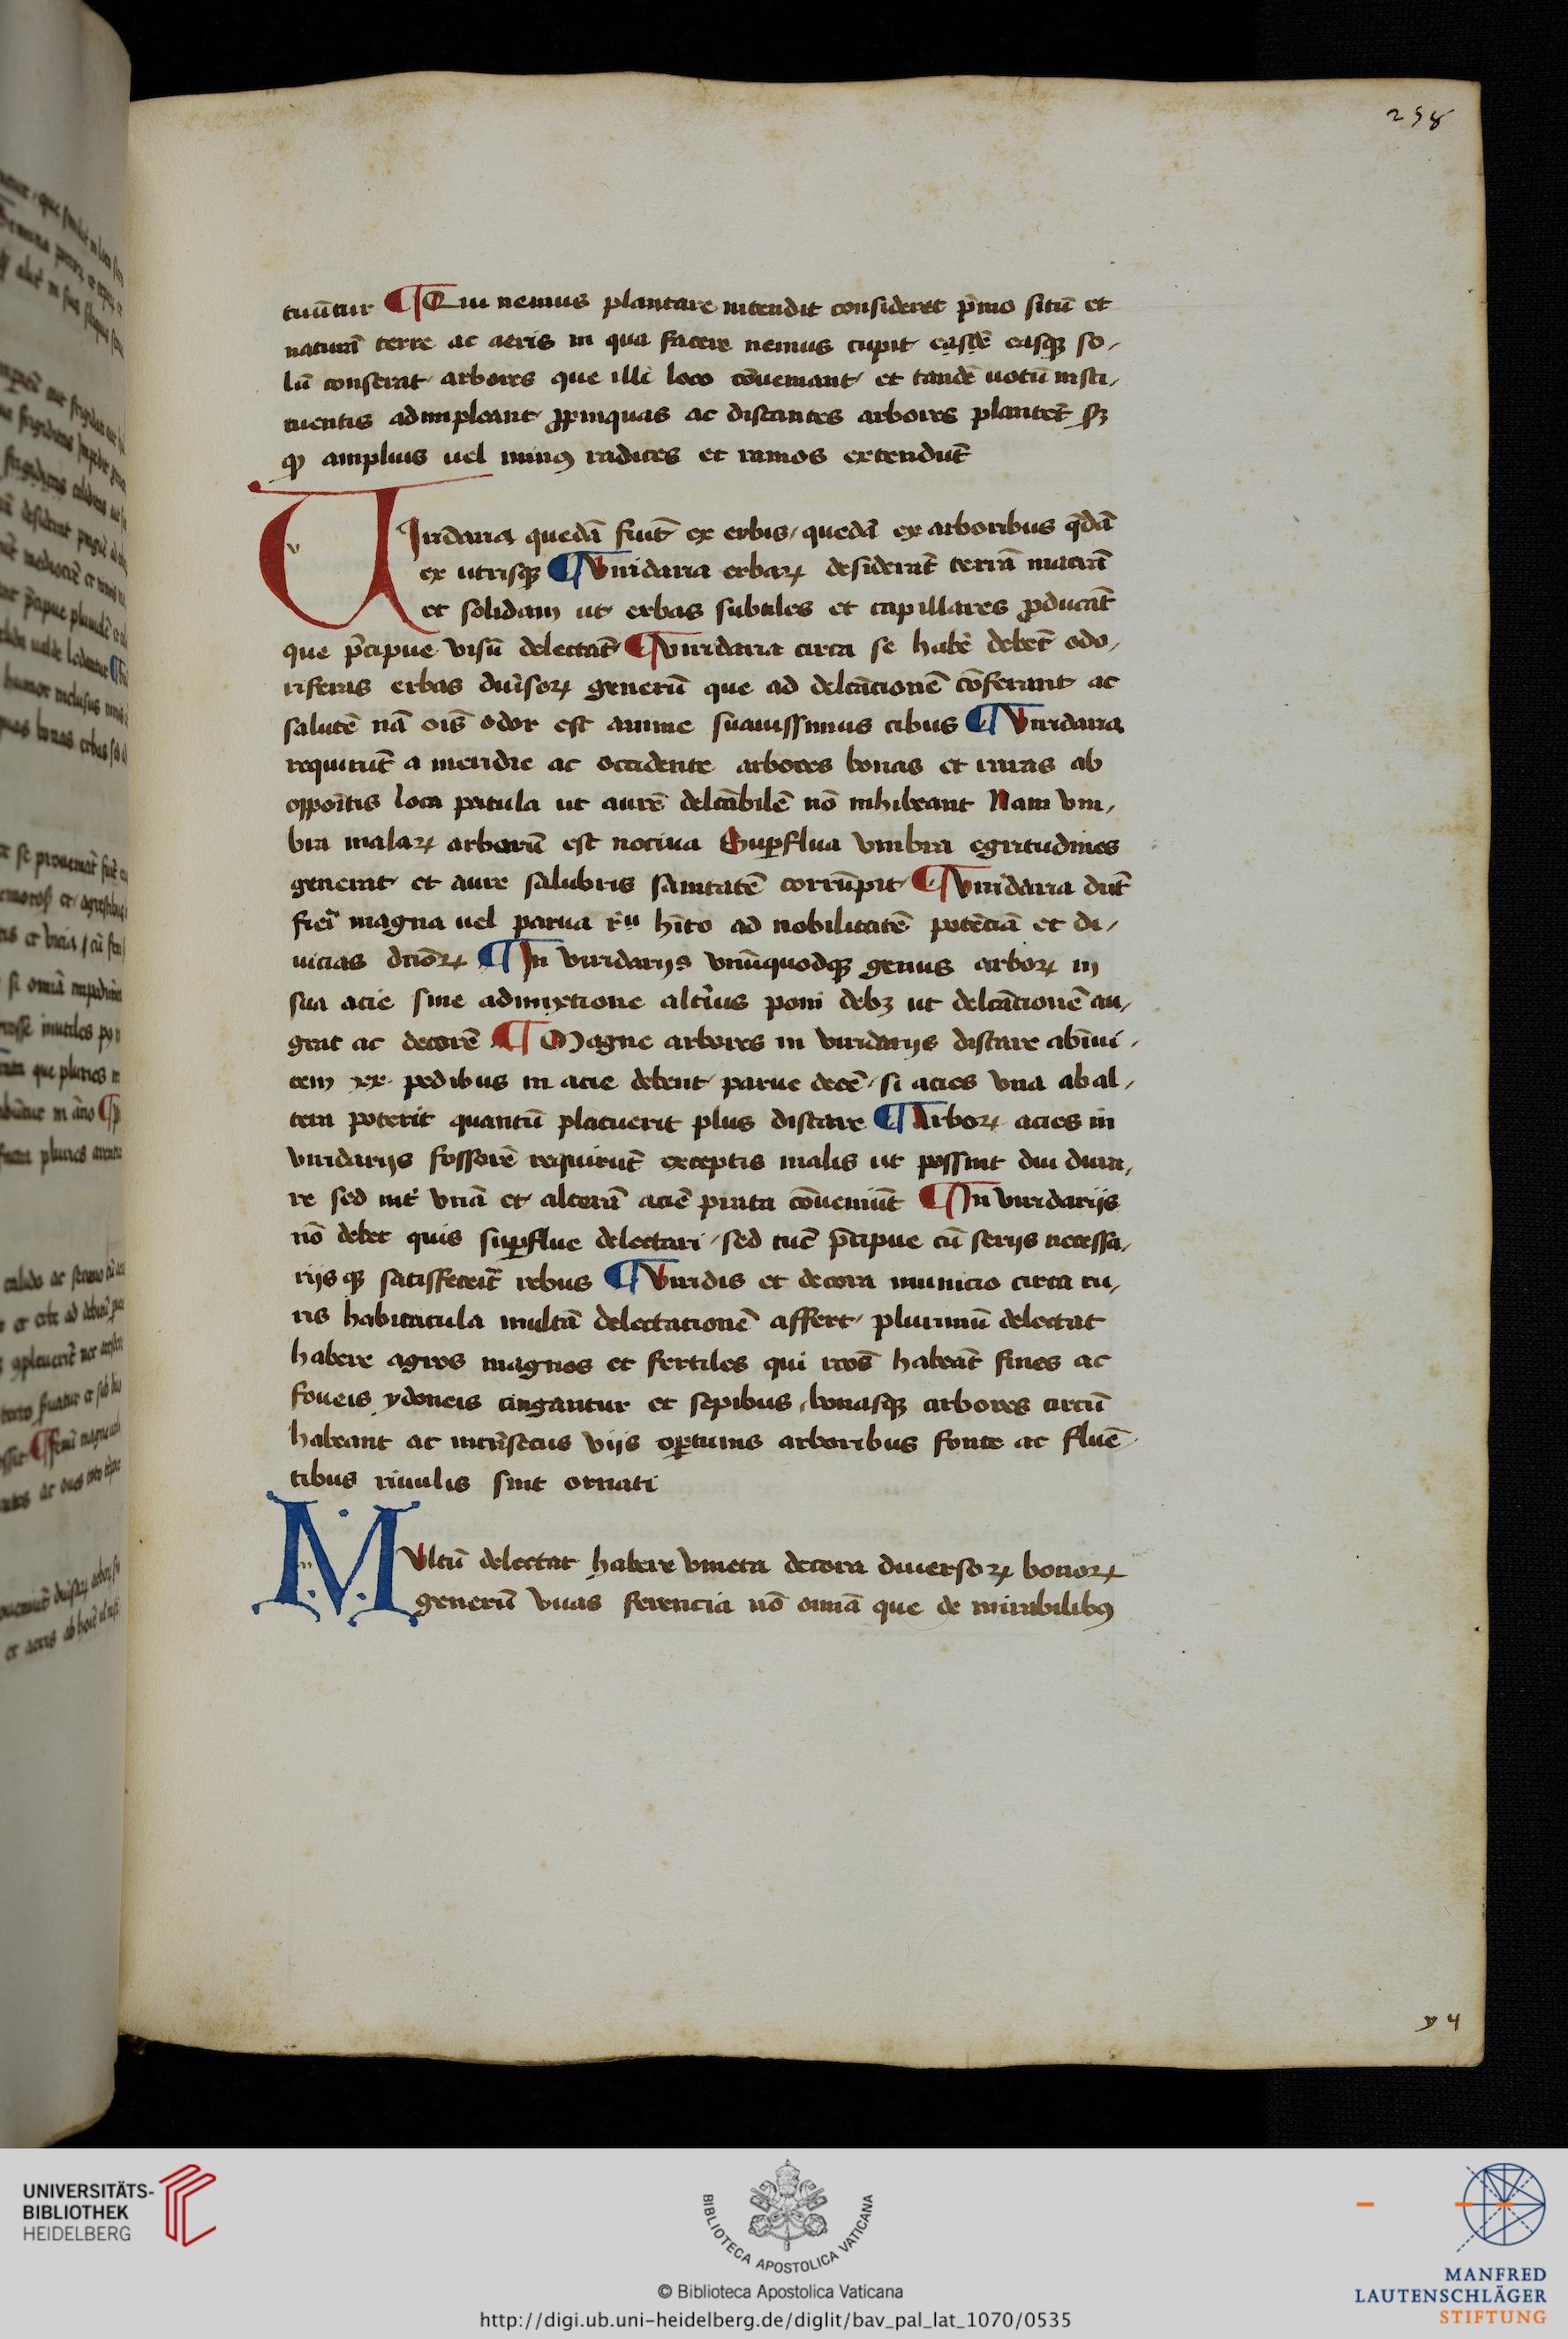 258
tuūtur ¶ Qui nemus plantare intendit consideret pͥmo sitū et
naturā terre ac aeris in qua facere nemus cupit easdē easqꝫ so-
lū conserat arbores que illi loco cōueniant et tandē uotū insti-
tuentis adimpleant ꝓpinquas ac distantes arbores plantet sꝫ
ꝙ amplius uel minꝰ radices et ramos extendūt
UIridaria quedā fiūt ex erbis / quedā ex arboribus qͣdā
ex utrisqꝫ ¶ Viridaria erbaꝝ desiderāt terrā macrā
et solidam ut erbas subtiles et capillares ꝓducāt
que pͥcipue visū delectāt ¶ viridaria circa se habē debēt odo-
riferas erbas diuͥsoꝝ generū que ad delcācionē cōferant ac
salutē nā oīs odor est anime suauissimus cibus ¶ Viridaria
requirūt a meridie ac occidente arbores bonas et raras ab
oppoītis loca patula ut aurē delcābilē nō inhibeant Nam vm-
bra malaꝝ arborū est nociua Suꝑflua vmbra egritudines
generat et aure salubris sanitatē corrūpit ¶ viridaria dūt
fieri magna uel parua r̄u hīto ad nobilitatē potēciā et di-
uicias dnōꝝ ¶ In viridariis vnūquodqꝫ genus arboꝝ in
sua acie sine admixtione altͥius poni debꝫ ut delcācionē au-
geat ac decorē ¶ Magne arbores in viridariis distare abīui-
cem xx pedibus in acie debent parue decē / si acies vna ab al-
tera poterit quantū placuerit plus distare ¶ Arboꝝ acies in
viridariis fossorē requirūt exceptis malis ut possint diu dura-
re sed intͥ vnā et alterā aciē prata cōueniūt ¶ In viridariis
nō debet quis suꝑflue delectari / sed tūc pͥcipue cū seriis necessa-
riis qꝫ satisfecerit rebus ¶ Viridis et decora municio circa ru-
ris habitacula multā delectationē affert plurimū delectat
habere agros magnos et fertiles qui rcōs habeāt fines ac
foueis ydoneis cingantur et sepibus bonasqꝫ arbores circū
habeant ac intrīsecus viis oꝑtunis arboribus fonte ac fluē-
tibus riuulis sint ornati
MVltū delectat habere vineta decora diuersoꝝ bonoꝝ
generū vuas ferencia nō omīa que de mirabilibꝰ
y 4
UNIVERSITÄTS-
BIBLIOTHEK
HEIDELBERG
BIBLIOTECA APOSTOLICA VATICANA
© Biblioteca Apostolica Vaticana
http://digi.ub.uni-heidelberg.de/diglit/bav_pal_lat_1070/0535
MANFRED
LAUTENSCHLÄGER
STIFTUNG